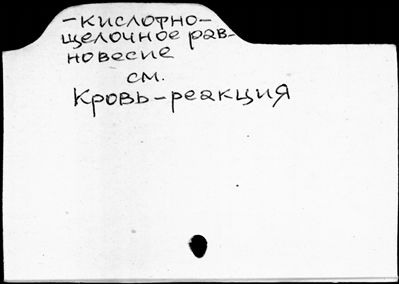 -Кислотно-
щелочное рав-
новесие
см.
Кровь-реакция